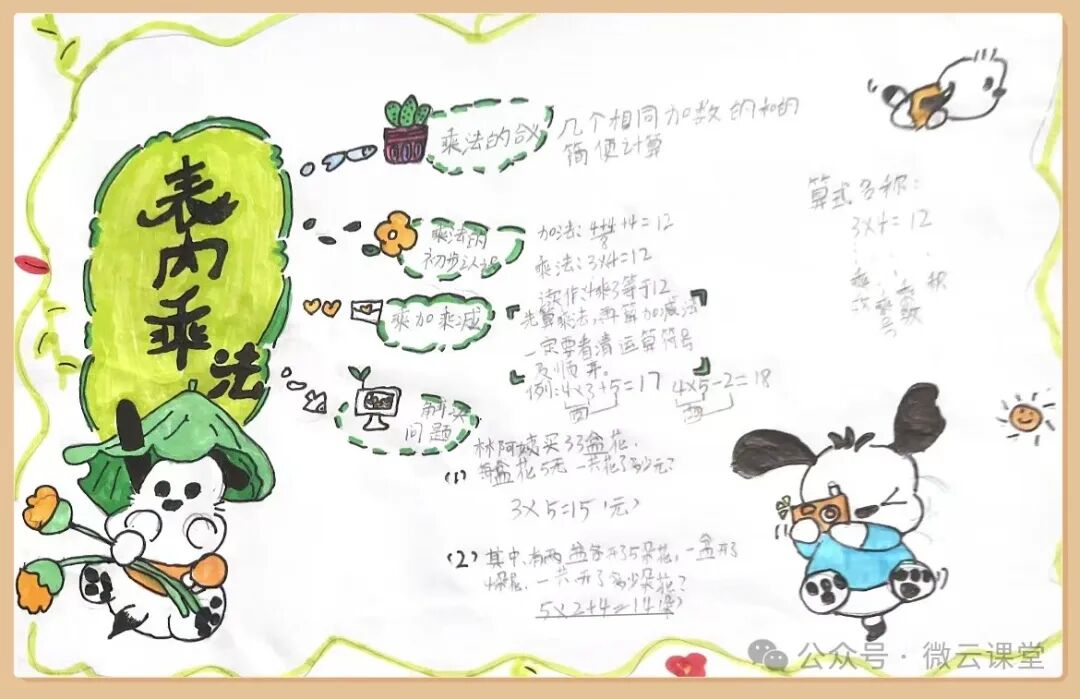 表内乘法
乘法的含义
几个相同加数的和的
简便计算
乘法的
初步认识
加法:4+4+4=12
8
乘法:3×4=12
读作:4乘3等于12
乘加乘减
先算乘法,再算加减法
一定要看清运算符号
及顺序。
例:4×3+5=17 4×5-2=18
解决
问题
林阿姨买了3盆花,
(1) 每盆花5元 一共花了多少元?
3×5=15(元)
(2) 其中,有两盆各开了5朵花,一盆开了
一共开了多少朵花?
5×2+4=14(朵)
算式名称:
3×4=12
乘数
乘号
乘数
积
公众号·微云课堂